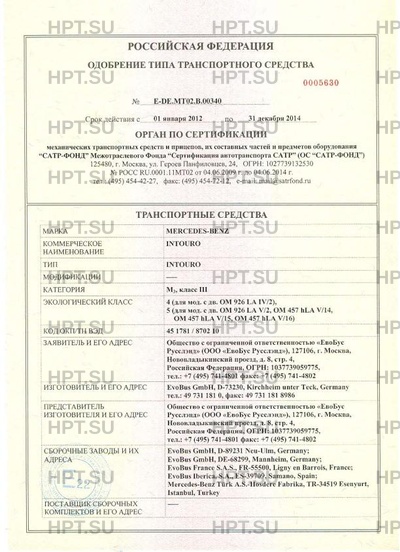 HPT.SU HPT.SU HPT.SU
РОССИЙСКАЯ ФЕДЕРАЦИЯ
ОДОБРЕНИЕ ТИПА ТРАНСПОРТНОГО СРЕДСТВА
0005630
№ E-DE.MT02.B.00340
Срок действия с 01 января 2012 по 31 декабря 2014
ОРГАН ПО СЕРТИФИКАЦИИ
механических транспортных средств и прицепов, их составных частей и предметов оборудования
“САТР-ФОНД” Межотраслевого Фонда “Сертификация автотранспорта САТР” (ОС “САТР-ФОНД”)
125480, г. Москва, ул. Героев Панфиловцев, 24, ОГРН: 1027739132530
№ РОСС RU.0001.11МТ02 от 04.06.2009 г. до 04.06.2014 г.
тел.: (495) 454-42-27, факс: (495) 454-72-12, e-mail: mail@satrfond.ru
ТРАНСПОРТНЫЕ СРЕДСТВА
МАРКА MERCEDES-BENZ
КОММЕРЧЕСКОЕ INTOURO
НАИМЕНОВАНИЕ
ТИП INTOURO
МОДИФИКАЦИИ —
КАТЕГОРИЯ M3, класс III
ЭКОЛОГИЧЕСКИЙ КЛАСС 4 (для мод. с дв. OM 926 LA IV/2),
5 (для мод. с дв. OM 926 LA V/2, OM 457 hLA V/14,
OM 457 hLA V/15, OM 457 hLA V/16)
КОД ОКП/ТН ВЭД 45 1781 / 8702 10
ЗАЯВИТЕЛЬ И ЕГО АДРЕС Общество с ограниченной ответственностью «ЕвоБус
Русслэнд» (ООО «ЕвоБус Русслэнд»), 127106, г. Москва,
Нововладыкинский проезд, д. 8, стр. 4,
Российская Федерация, ОГРН: 1037739059775,
тел.: +7 (495) 741-4801 факс: +7 (495) 741-4802
ИЗГОТОВИТЕЛЬ И ЕГО АДРЕС EvoBus GmbH, D-73230, Kirchheim unter Teck, Germany
tel.: 49 731 181 0, факс: 49 731 181 8986
ПРЕДСТАВИТЕЛЬ Общество с ограниченной ответственностью «ЕвоБус
ИЗГОТОВИТЕЛЯ И ЕГО АДРЕС Русслэнд» (ООО «ЕвоБус Русслэнд»), 127106, г. Москва,
Нововладыкинский проезд, д. 8, стр. 4,
Российская Федерация, ОГРН: 1037739059775,
тел.: +7 (495) 741-4801 факс: +7 (495) 741-4802
СБОРОЧНЫЕ ЗАВОДЫ И ИХ EvoBus GmbH, D-89231 Neu-Ulm, Germany;
АДРЕСА EvoBus GmbH, DE-68299, Mannheim, Germany;
EvoBus France S.A.S., FR-55500, Ligny en Barrois, France;
EvoBus Iberica, S.A., ES-39709, Samano, Spain;
Mercedes-Benz Türk A.S. Hosdere Fabrika, TR-34519 Esenyurt,
Istanbul, Turkey
ПОСТАВЩИК СБОРОЧНЫХ —
КОМПЛЕКТОВ И ЕГО АДРЕС
HPT.SU HPT.SU HPT.SU